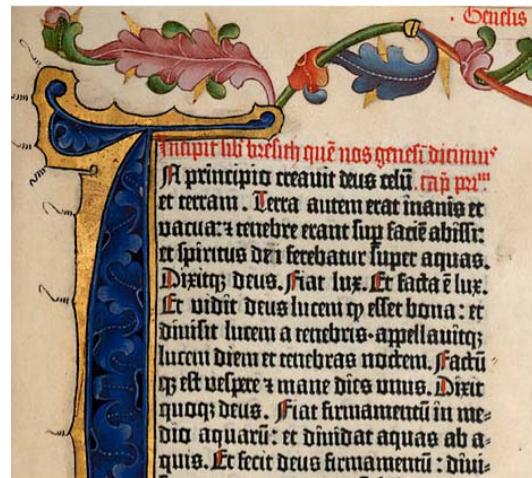 · Genesis
Incipit lib̄ bresith quē nos genesī dicimus
In principio creavit deus celū . cap̄ prīm
et terram. Terra autem erat inanis et
vacua: ⁊ tenebre erant sup̄ faciē abissi:
et spiritus dei ferebatur super aquas.
Dixitqꝫ deus. Fiat lux. Et facta ē lux.
Et vidit deus lucem ꝙ esset bona: et
divisit lucem a tenebris · appellavitqꝫ
lucem diem et tenebras noctem. Factū
qꝫ est vespere ⁊ mane dies unus. Dixit
quoqꝫ deus. Fiat firmamentū in me⸗
dio aquarū: et dividat aquas ab a⸗
quis. Et fecit deus firmamentū: divi⸗